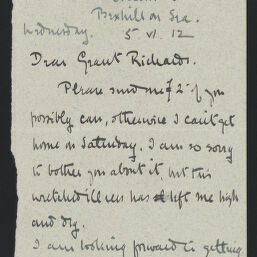 Bexhill on Sea.
Wednesday. 5 VI 12
Dear Grant Richards.
Please send me £2 if you
possibly can, otherwise I can't get
home on Saturday. I am so sorry
to bother you about it, but this
wretched illness has left me high
and dry.
I am looking forward to getting